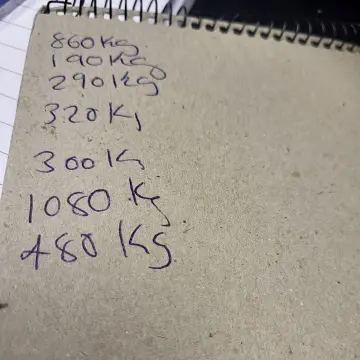 860Kg
190Kg
290Kg
320Kg
300Kg
1080 Kg
480 KG